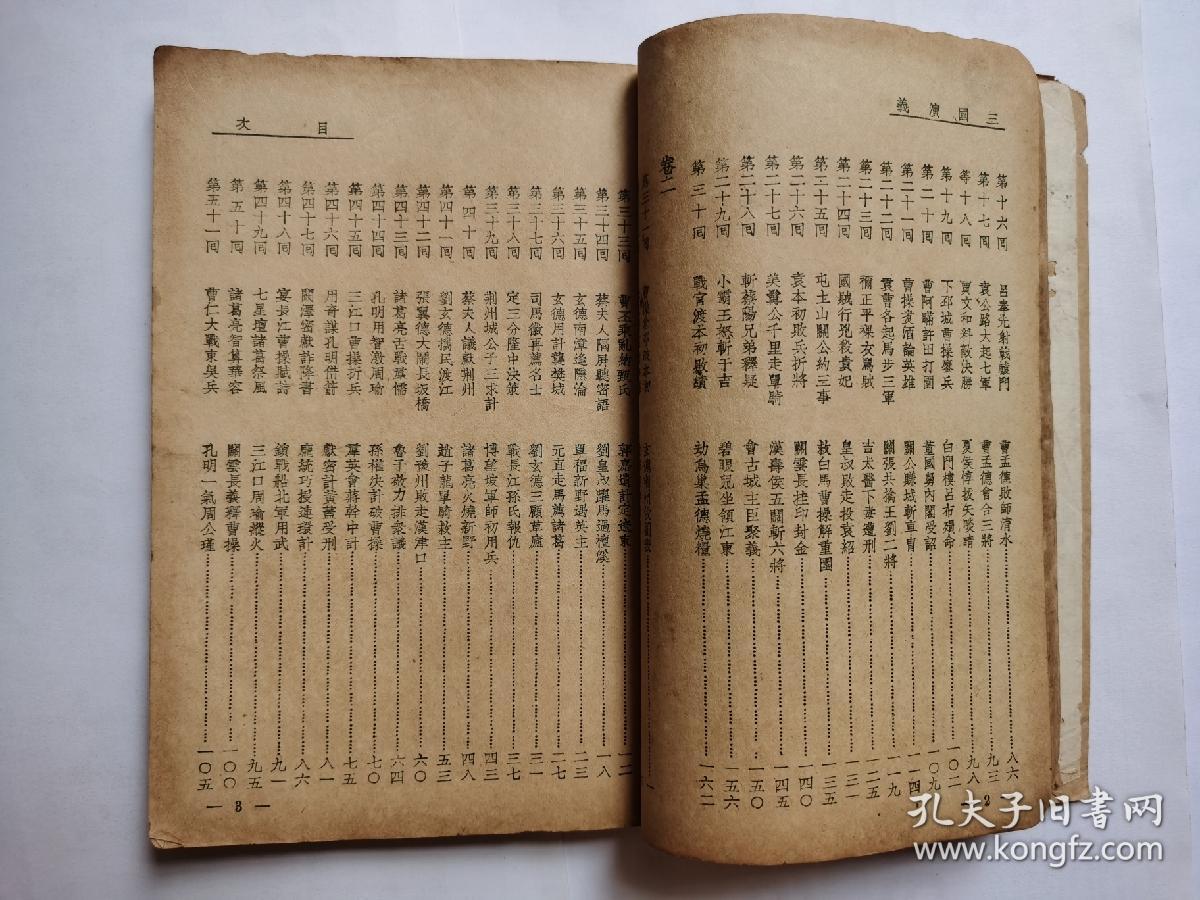 三國演義
第十六回 呂奉先射戟轅門 曹孟德敗師淯水 八六
第十七回 袁公路大起七軍 曹孟德會合三將 九三
第十八回 賈文和料敵決勝 夏侯惇拔矢啖睛 九八
第十九回 下邳城曹操鏖兵 白門樓呂布殞命 一〇二
第二十回 曹阿瞞許田打圍 董國舅內閣受詔 一〇九
第二十一回 曹操煮酒論英雄 關公賺城斬車冑 一一四
第二十二回 袁曹各起馬步三軍 關張共擒王劉二將 一一九
第二十三回 禰正平裸衣罵賊 吉太醫下毒遭刑 一二五
第二十四回 國賊行兇殺貴妃 皇叔敗走投袁紹 一三一
第二十五回 屯土山關公約三事 救白馬曹操解重圍 一三五
第二十六回 袁本初敗兵折將 關雲長挂印封金 一四〇
第二十七回 美髯公千里走單騎 漢壽侯五關斬六將 一四五
第二十八回 斬蔡陽兄弟釋疑 會古城主臣聚義 一五〇
第二十九回 小霸王怒斬于吉 碧眼兒坐領江東 一五六
第三十回 戰官渡本初敗績 劫烏巢孟德燒糧 一六二
卷二
2
目次
第三十三回 曹丕乘亂納甄氏 郭嘉遺計定遼東 一二
第三十四回 蔡夫人隔屏聽密語 劉皇叔躍馬過檀溪 一八
第三十五回 玄德南漳逢隱淪 單福新野遇英主 二三
第三十六回 玄德用計襲樊城 元直走馬薦諸葛 二七
第三十七回 司馬徽再薦名士 劉玄德三顧草廬 三一
第三十八回 定三分隆中決策 戰長江孫氏報仇 三七
第三十九回 荊州城公子三求計 博望坡軍師初用兵 四三
第四十回 蔡夫人議獻荊州 諸葛亮火燒新野 四八
第四十一回 劉玄德攜民渡江 趙子龍單騎救主 五三
第四十二回 張翼德大鬧長坂橋 劉豫州敗走漢津口 六〇
第四十三回 諸葛亮舌戰羣儒 魯子敬力排衆議 六四
第四十四回 孔明用智激周瑜 孫權決計破曹操 七〇
第四十五回 三江口曹操折兵 羣英會蔣幹中計 七五
第四十六回 用奇謀孔明借箭 獻密計黃蓋受刑 八一
第四十七回 闞澤密獻詐降書 龐統巧授連環計 八六
第四十八回 宴長江曹操賦詩 鎖戰船北軍用武 九一
第四十九回 七星壇諸葛祭風 三江口周瑜縱火 九五
第五十回 諸葛亮智算華容 關雲長義釋曹操 一〇〇
第五十一回 曹仁大戰東吳兵 孔明一氣周公瑾 一〇五
— 3 —
孔夫子旧书网
www.kongfz.com